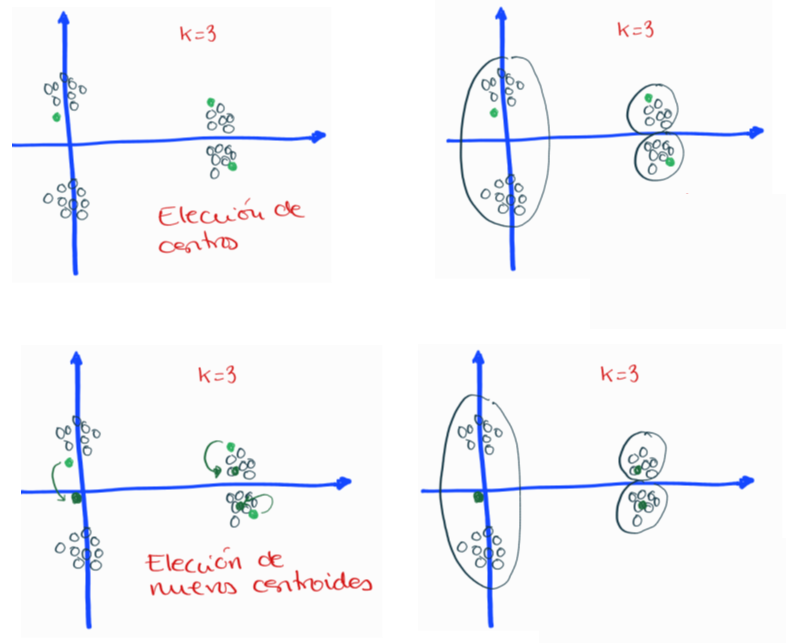 k=3
Elección de
centro
k=3
k=3
Elección de
nuevos centroides
k=3